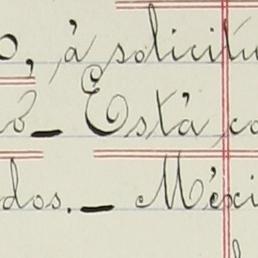 o, á solicitu
ó_ Está co
dos._ Méxi